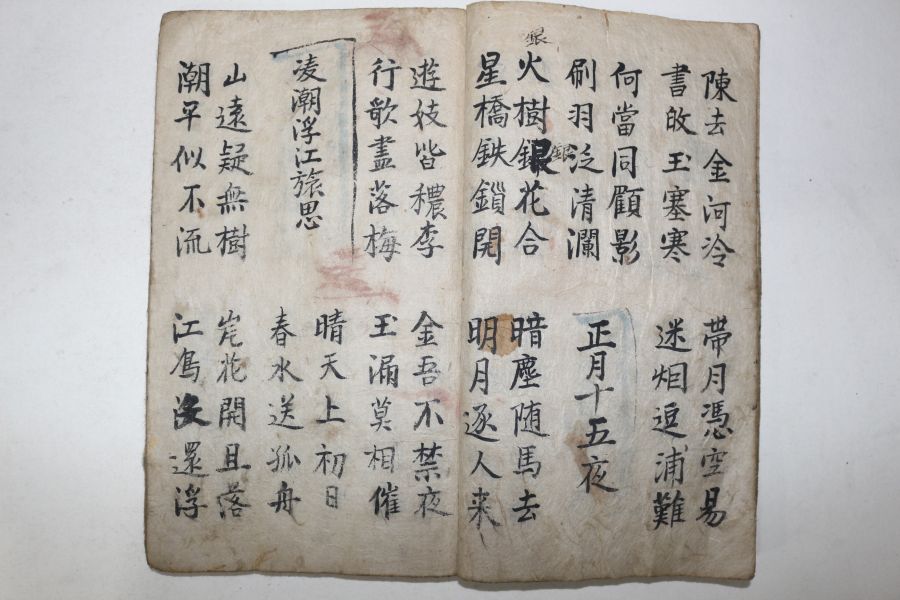 陳去金河冷
書敀玉塞寒
帶月憑空易
迷烟逗浦難
何當同顧影
刷羽泛清瀾
正月十五夜
銀
火樹銀花合
銀
星橋鉄鎖開
暗塵随馬去
明月逐人来
遊妓皆穠李
行歌盡落梅
金吾不禁夜
玉漏莫相催
凌潮浮江旅思
晴天上初日
春水送孤舟
山遠疑無樹
潮平似不流
岸花開且落
江鳥没還浮